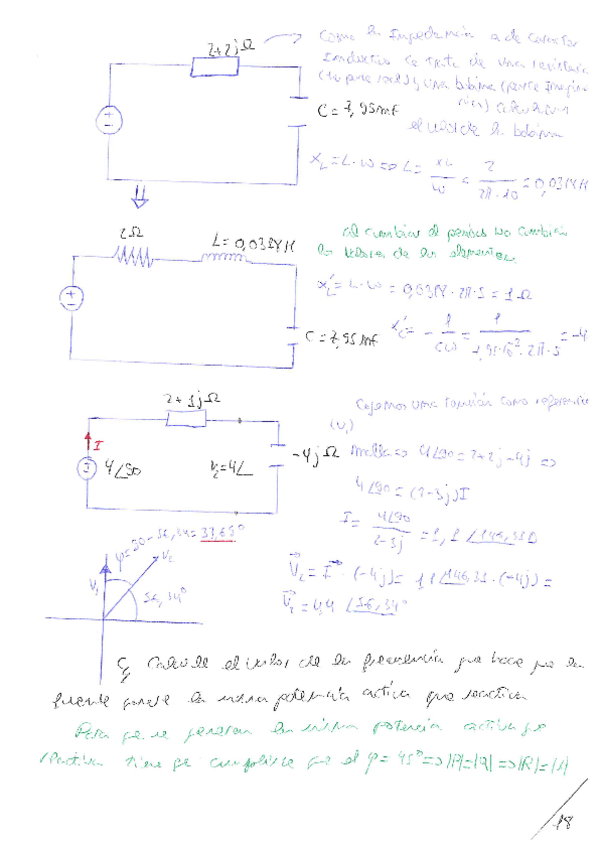 2+2jΩ
Como la Impedancia a de caracter
Inductivo se trata de una resistencia
(la parte real) y una bobina (parte Imagin
aria) calculamos
el valor de la bobina
C = 7,95mf
XL = L·ω => L = XL/ω = 2/2π·10 = 0,0318H
2Ω
L = 0,0318H
Al cambiar el periodo no cambian
los valores de los elementos
X'L = L·ω = 0,0318·2π·5 = 1Ω
C = 7,95mf
X'c = - 1/Cω = 1/7,95·10⁻³·2π·5 = -4
2+1jΩ
Cojemos una tensión como referencia
(V1)
I
4∠90
V2=4∠
-4jΩ
Malla => 4∠90 = 2+2j-4j =>
4∠90 = (2-3j)I
I = 4∠90/2-3j = 1,1∠146,31Ω
φ=90-56,34=33,69°
V2
V1
56,34°
V2 = I·(-4j) = 1,1∠146,31·(-4j) =
V2 = 4,4∠56,34°
C) Calcule el valor de la frecuencia que hace que la
fuente genere la misma potencia activa que reactiva
Para que se generan la misma potencia activa que
reactiva tiene que cumplirse que el φ=45° => |P|=|Q| => |R|=|X|
18